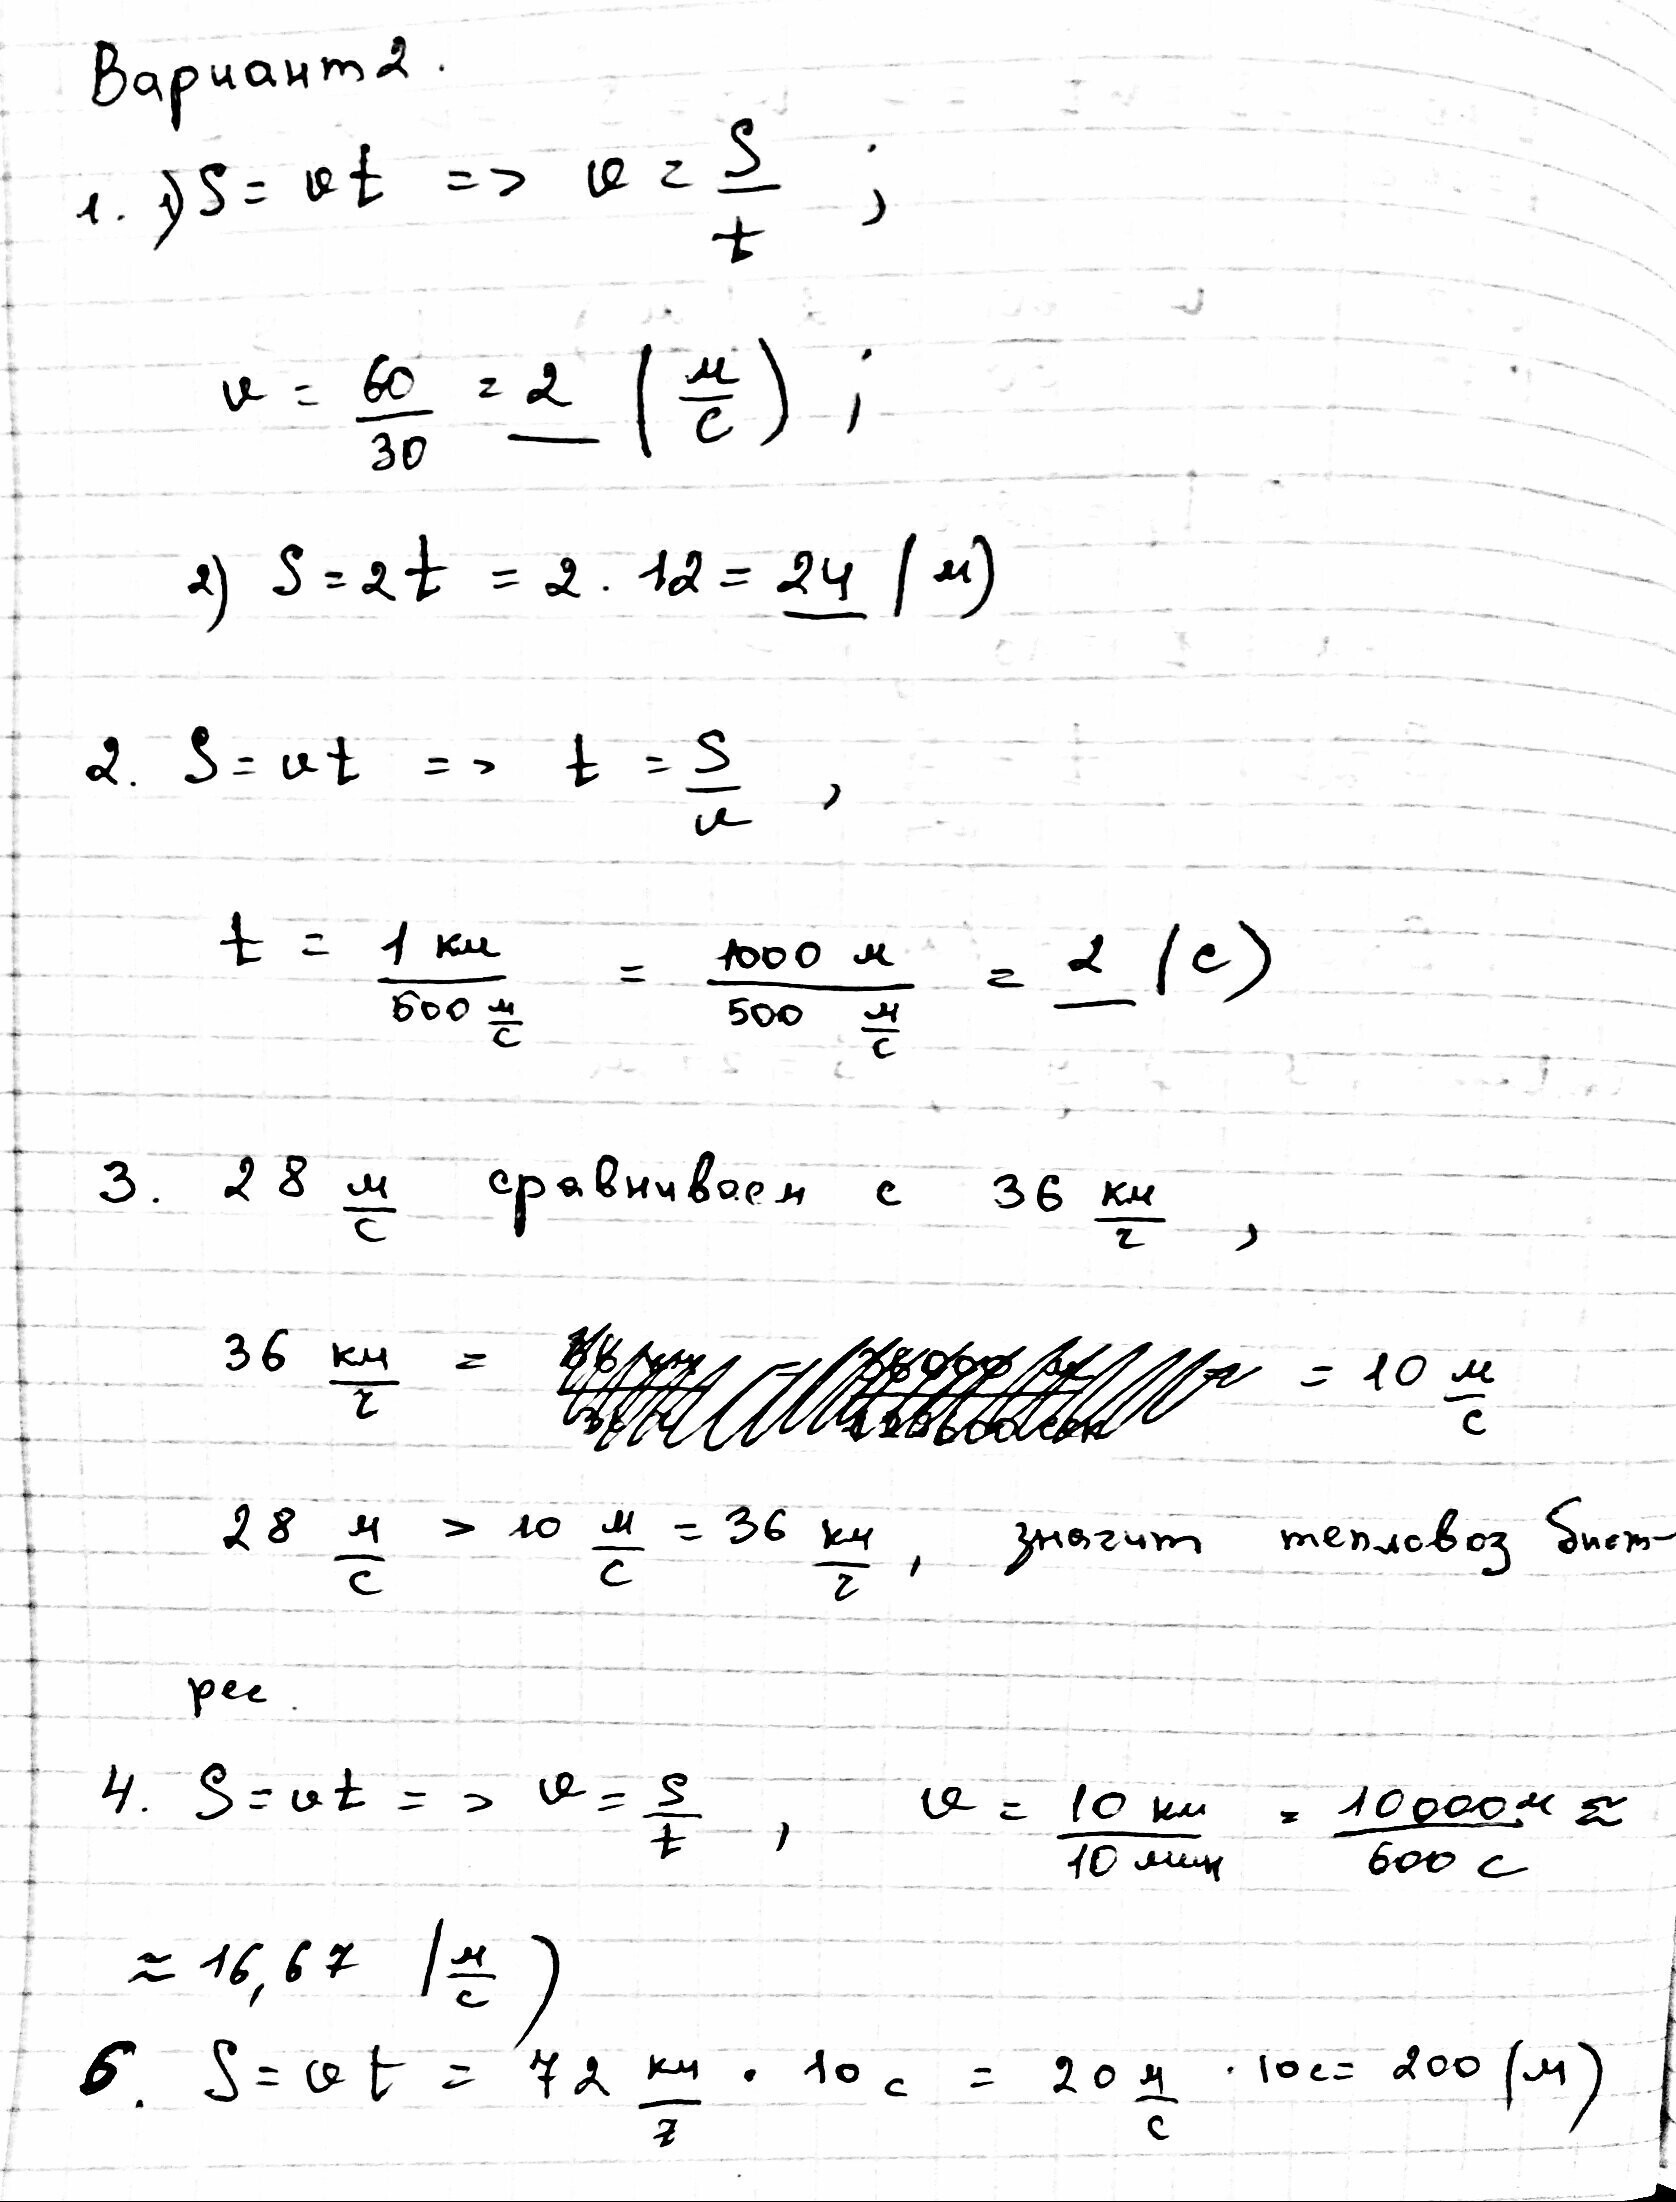 Вариант 2.
1. 1) S = vt => v = S/t ;
v = 60/30 = 2 (м/с) ;
2) S = 2t = 2 · 12 = 24 (м)
2. S = vt => t = S/v ,
t = 1 км/500 м/с = 1000 м/500 м/с = 2 (с)
3. 28 м/с сравниваем с 36 км/г ,
36 км/г = = 10 м/с
28 м/с > 10 м/с = 36 км/г , значит тепловоз бист-
рее.
4. S = vt => v = S/t , v = 10 км/10 мин = 10000 м/600 с ≈
≈ 16,67 (м/с)
6. S = vt = 72 км/г · 10 с = 20 м/с · 10 с = 200 (м)